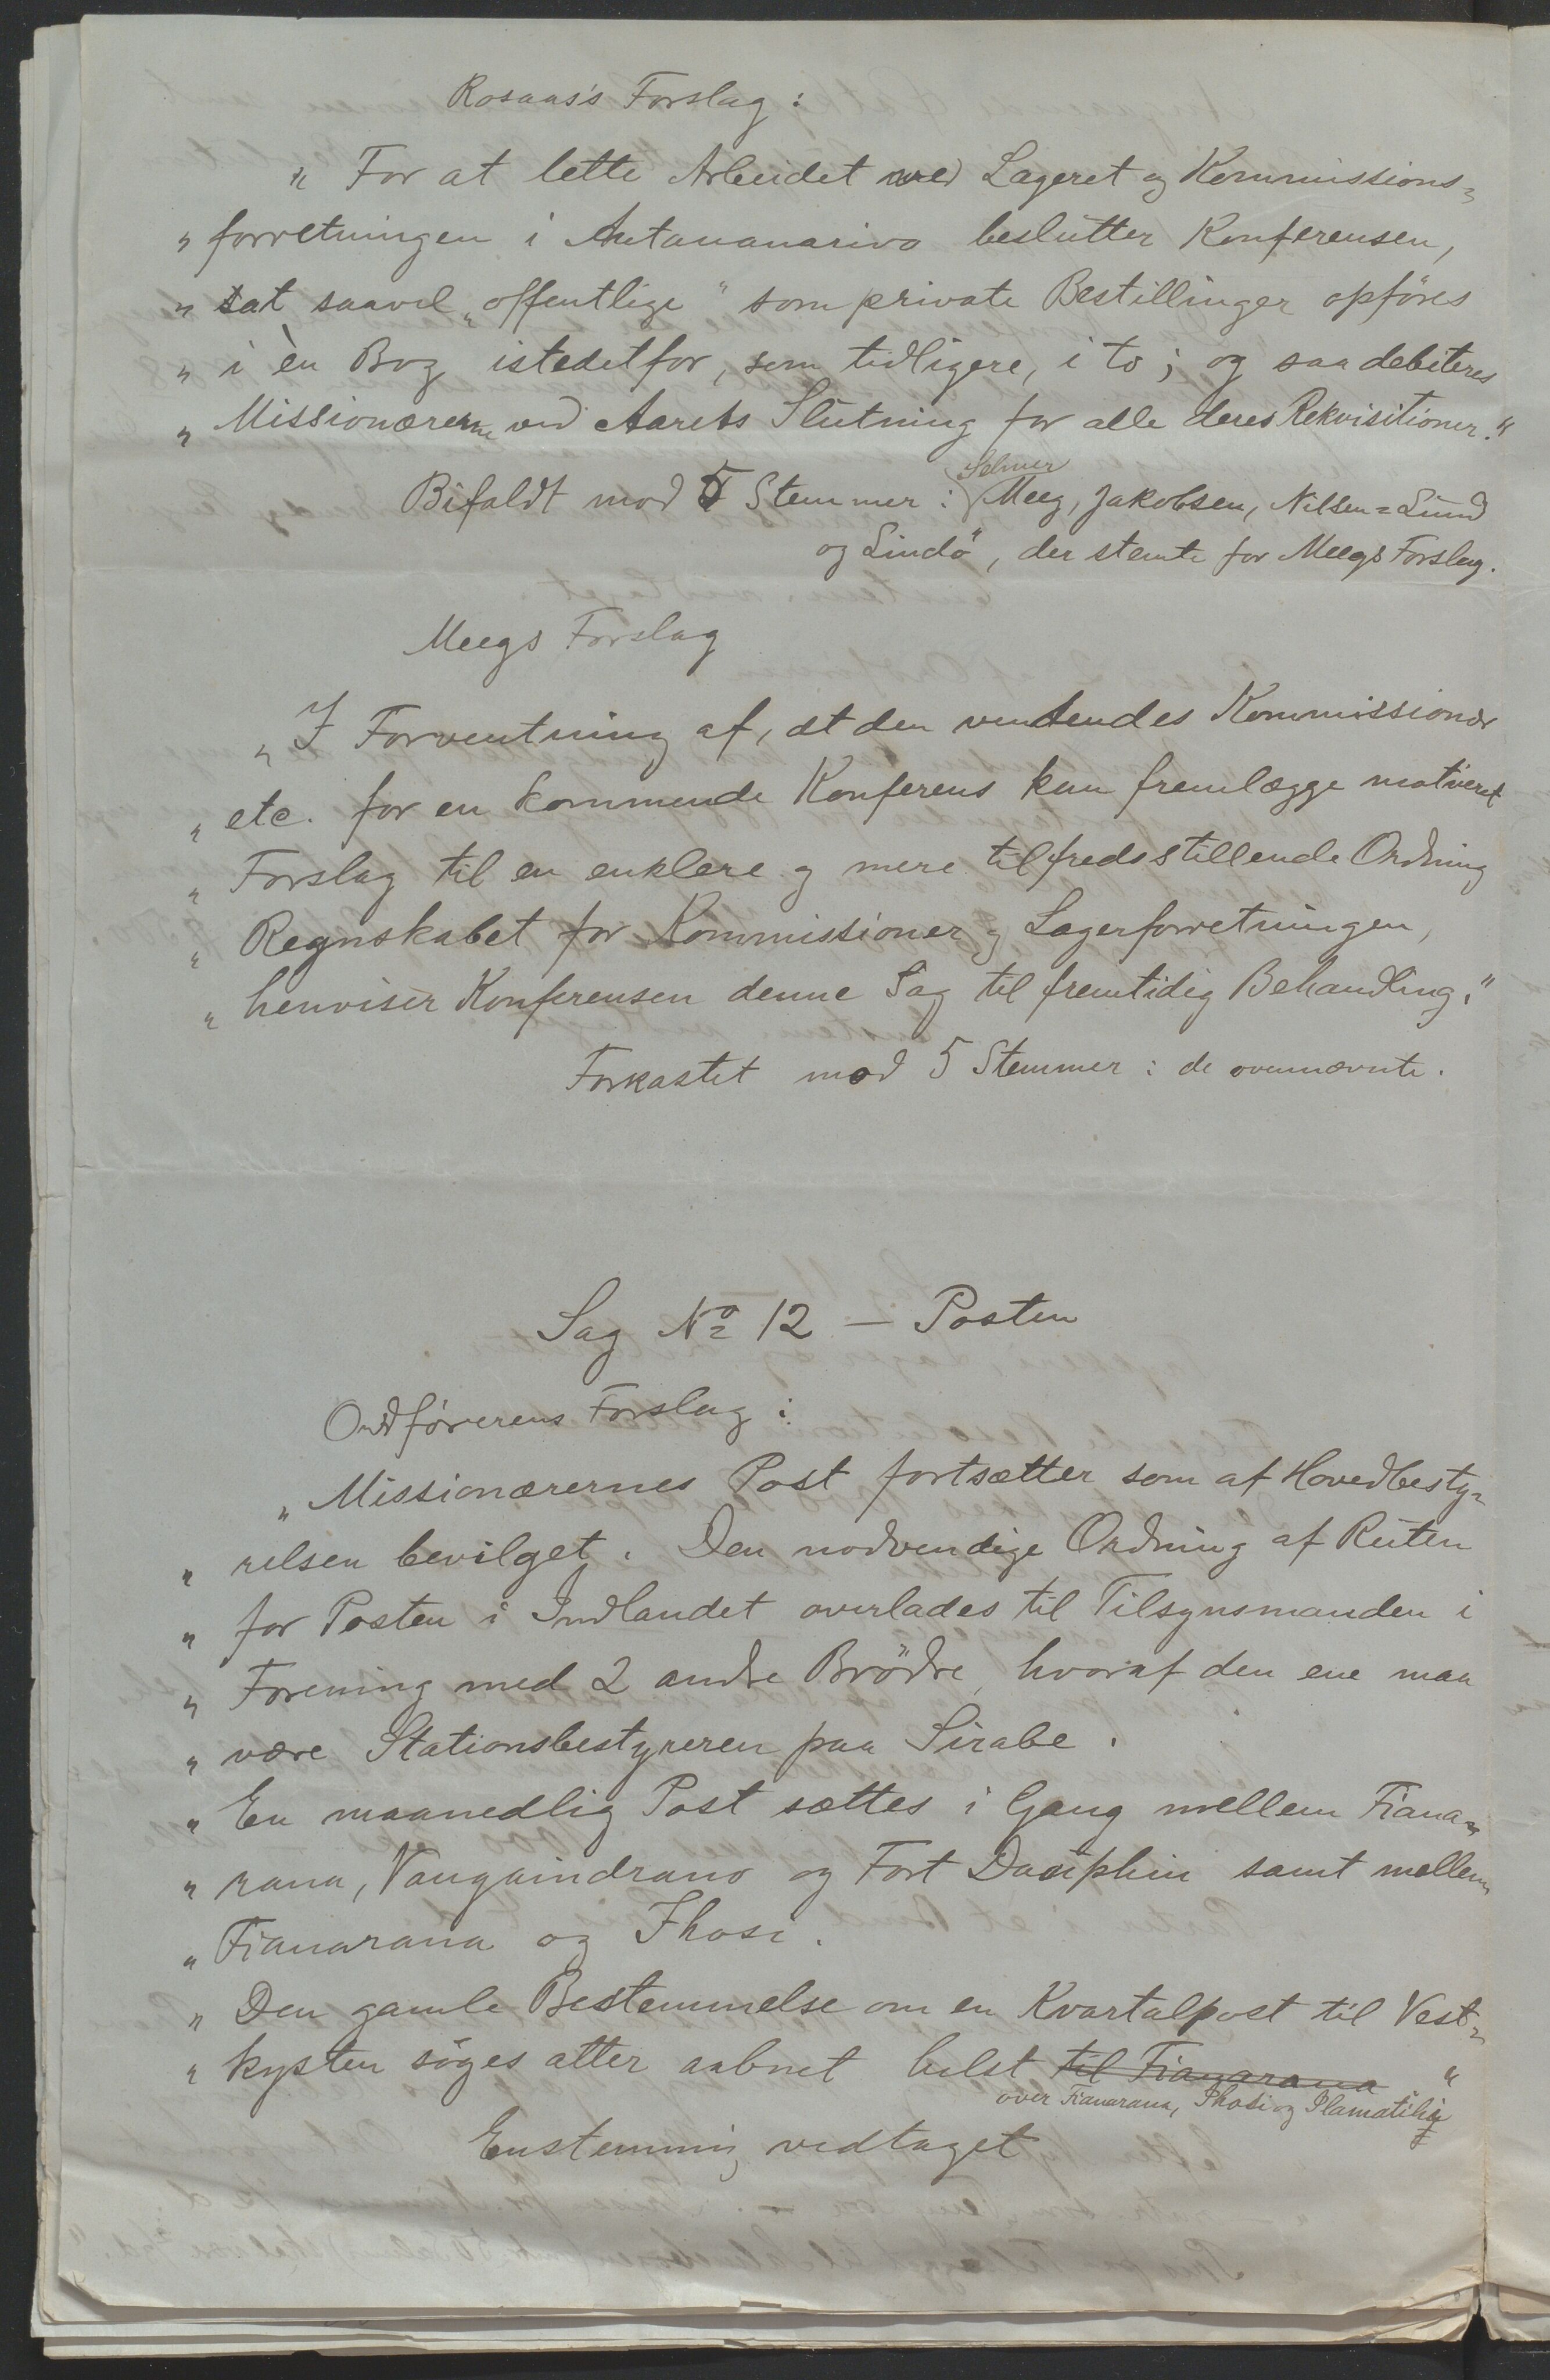 Rosaas's Forslag:
„ For at lette Arbeidet ved Lageret og Kommissions=
„ forretningen i Antananarivo beslutter Konferensen,
„ at saavel „offentlige" som private Bestillinger opföres
„ i èn Bog istedetfor, som tidligere, i to; og saa debiteres
„ Missionærerne ved Aarets Slutning for alle deres Rekvisitioner."
Selmer
Bifaldt mod 5 Stemmer: Meeg, Jakobsen, Nilsen=Lund
og Lindö, der stemte for Meegs Forslag.
Meegs Forslag
„ I Forventning af, at den ventendes Kommissionær
„ etc. for en kommende Konferens kan fremlægge motiveret
„ Forslag til en enklere og mere tilfredsstillende Ordning
„ Regnskabet for Kommissioner og Lagerforretningen,
„ henviser Konferensen denne Sag til fremtidig Behandling."
Forkastet mod 5 Stemmer: de ovennævnte.
Sag No 12 — Posten
Ordförerens Forslag:
„ Missionærernes Post fortsætter som af Hovedbesty=
„ relsen bevilget. Den nødvendige Ordning af Ruten
„ for Posten i Indlandet overlades til Tilsynsmanden i
„ Forening med 2 andre Brödre, hvoraf den ene maa
„ være Stationsbestyreren paa Sirabe.
„ En maanedlig Post sættes i Gang mellem Fiana=
„ rana, Vangaindrano og Fort Dauphin samt mellem
„ Fianarana og Ihosi.
„ Den gamle Bestemmelse om en Kvartalpost til Vest=
„ kysten söges atter aabnet helst til Fianarana "
over Fianarana, Ihosi og
Enstemmig vedtaget